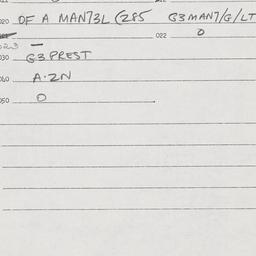 020 OF A MAN73L (285 G3MAN7/G/LT
022 0
023 —
030 G3PREST
060 A·2N
050 0